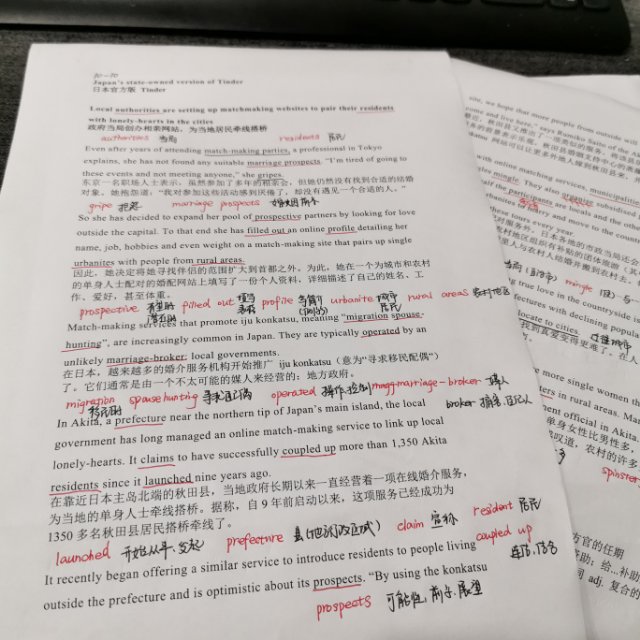 Japan's state-owned version of Tinder
日本官方版 Tinder
Local authorities are setting up matchmaking websites to pair their residents
with lonely-hearts in the cities
政府当局创办相亲网站，为当地居民牵线搭桥
authorities 当局 residents 居民
Even after years of attending match-making parties, a professional in Tokyo
explains, she has not found any suitable marriage prospects. "I'm tired of going to
these events and not meeting anyone," she gripes.
东京一名职场人士表示，虽然参加了多年的相亲会，但她仍然没有找到合适的结婚
对象。她抱怨道，"我对参加这些活动感到厌倦了，却没有遇见一个合适的人。"
gripe 抱怨 marriage prospects
So she has decided to expand her pool of prospective partners by looking for love
outside the capital. To that end she has filled out an online profile detailing her
name, job, hobbies and even weight on a match-making site that pairs up single
urbanites with people from rural areas.
因此，她决定将她寻找伴侣的范围扩大到首都之外。为此，她在一个为城市和农村
的单身人士配对的婚配网站上填写了一份个人资料，详细描述了自己的姓名、工
作、爱好，甚至体重。
prospective filled out 填写 profile urbanite 城市 rural areas 农村地区
表格 居民
Match-making services that promote iju konkatsu, meaning "migration spouse-
hunting", are increasingly common in Japan. They are typically operated by an
unlikely marriage-broker: local governments.
在日本，越来越多的婚介服务机构开始推广 iju konkatsu（意为"寻求移民配偶"）
了。它们通常是由一个不太可能的媒人来经营的：地方政府。
migration spouse hunting 寻求配偶 operated 操作，控制 marriage-broker 媒人
broker
In Akita, a prefecture near the northern tip of Japan's main island, the local
government has long managed an online match-making service to link up local
lonely-hearts. It claims to have successfully coupled up more than 1,350 Akita
residents since it launched nine years ago.
在靠近日本主岛北端的秋田县，当地政府长期以来一直经营着一项在线婚介服务，
为当地的单身人士牵线搭桥。据称，自 9 年前启动以来，这项服务已经成功为
1350 多名秋田县居民搭桥牵线了。
launched prefecture claim 宣称 resident 居民
coupled up
It recently began offering a similar service to introduce residents to people living
outside the prefecture and is optimistic about its prospects. "By using the konkatsu
prospects 可能性，前景，展望
site, we hope that more people from outside will
come and live here," says Rumiko Saito of the
with online matching services, municipalities
mingle. They also organise subsidised
half the participants are locals and the other
urbanites to hurry and move to the country
these tours every year.
mingle
ing true love in the countryside is
efectures with declining popula
locate to cities.
more single women th
ters in rural areas. Man
ment official in Akita.
单身女性比男性多，
叹道，农村的许多
spinster
方官的任期
adj. 复合的